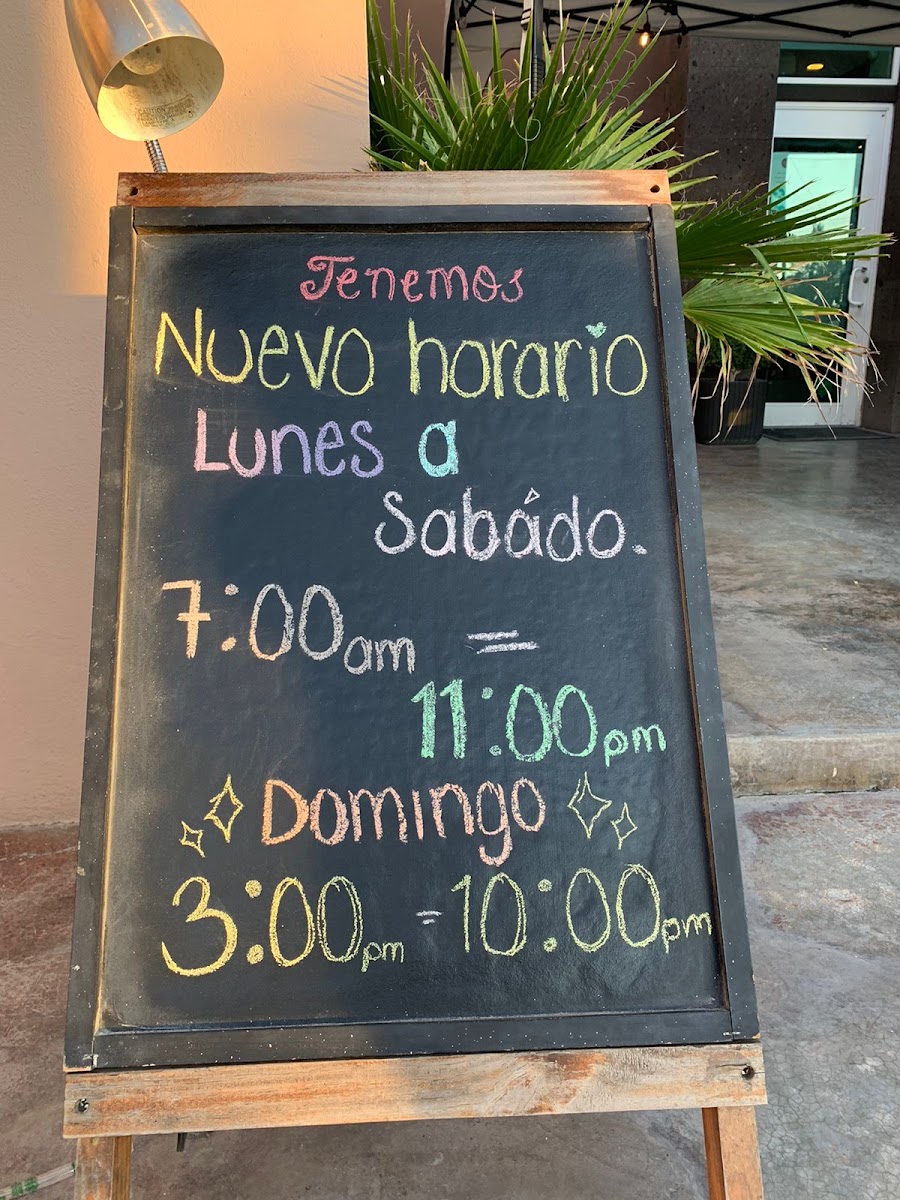 Tenemos
Nuevo horario
Lunes a
Sabádo.
7:00am =
11:00pm
Domingo
3:00pm = 10:00pm